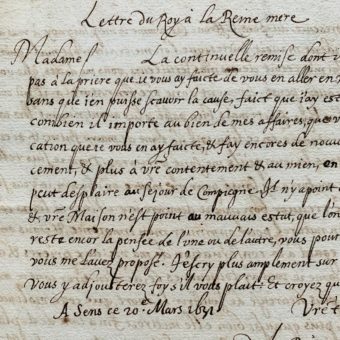 Lettre du Roy à la Reine mere
Madame La continuelle remise dont v
pas à la priere que ie vous ay faicte de vous en aller en
sans que i'en puisse scavoir la cause, faict que i'ay est
combien il importe au bien de mes affaires, que v
cation que ie vous en ay faicte, & fay encores de nouv
cement, & plus à vre contentement & au mien, en
peut desplaire au sejour de Compiegne. Il n'y a point d
& vre Maison n'est point au mauvais estat, que l'on
reste encor la pensée de l'une ou de l'autre, vous pour
vous me l'avez proposé. J'escry plus amplement sur
vous y adjousterez foy s'il vous plait. et croyez qu
A Sens ce 20e Mars 1631 Vre t